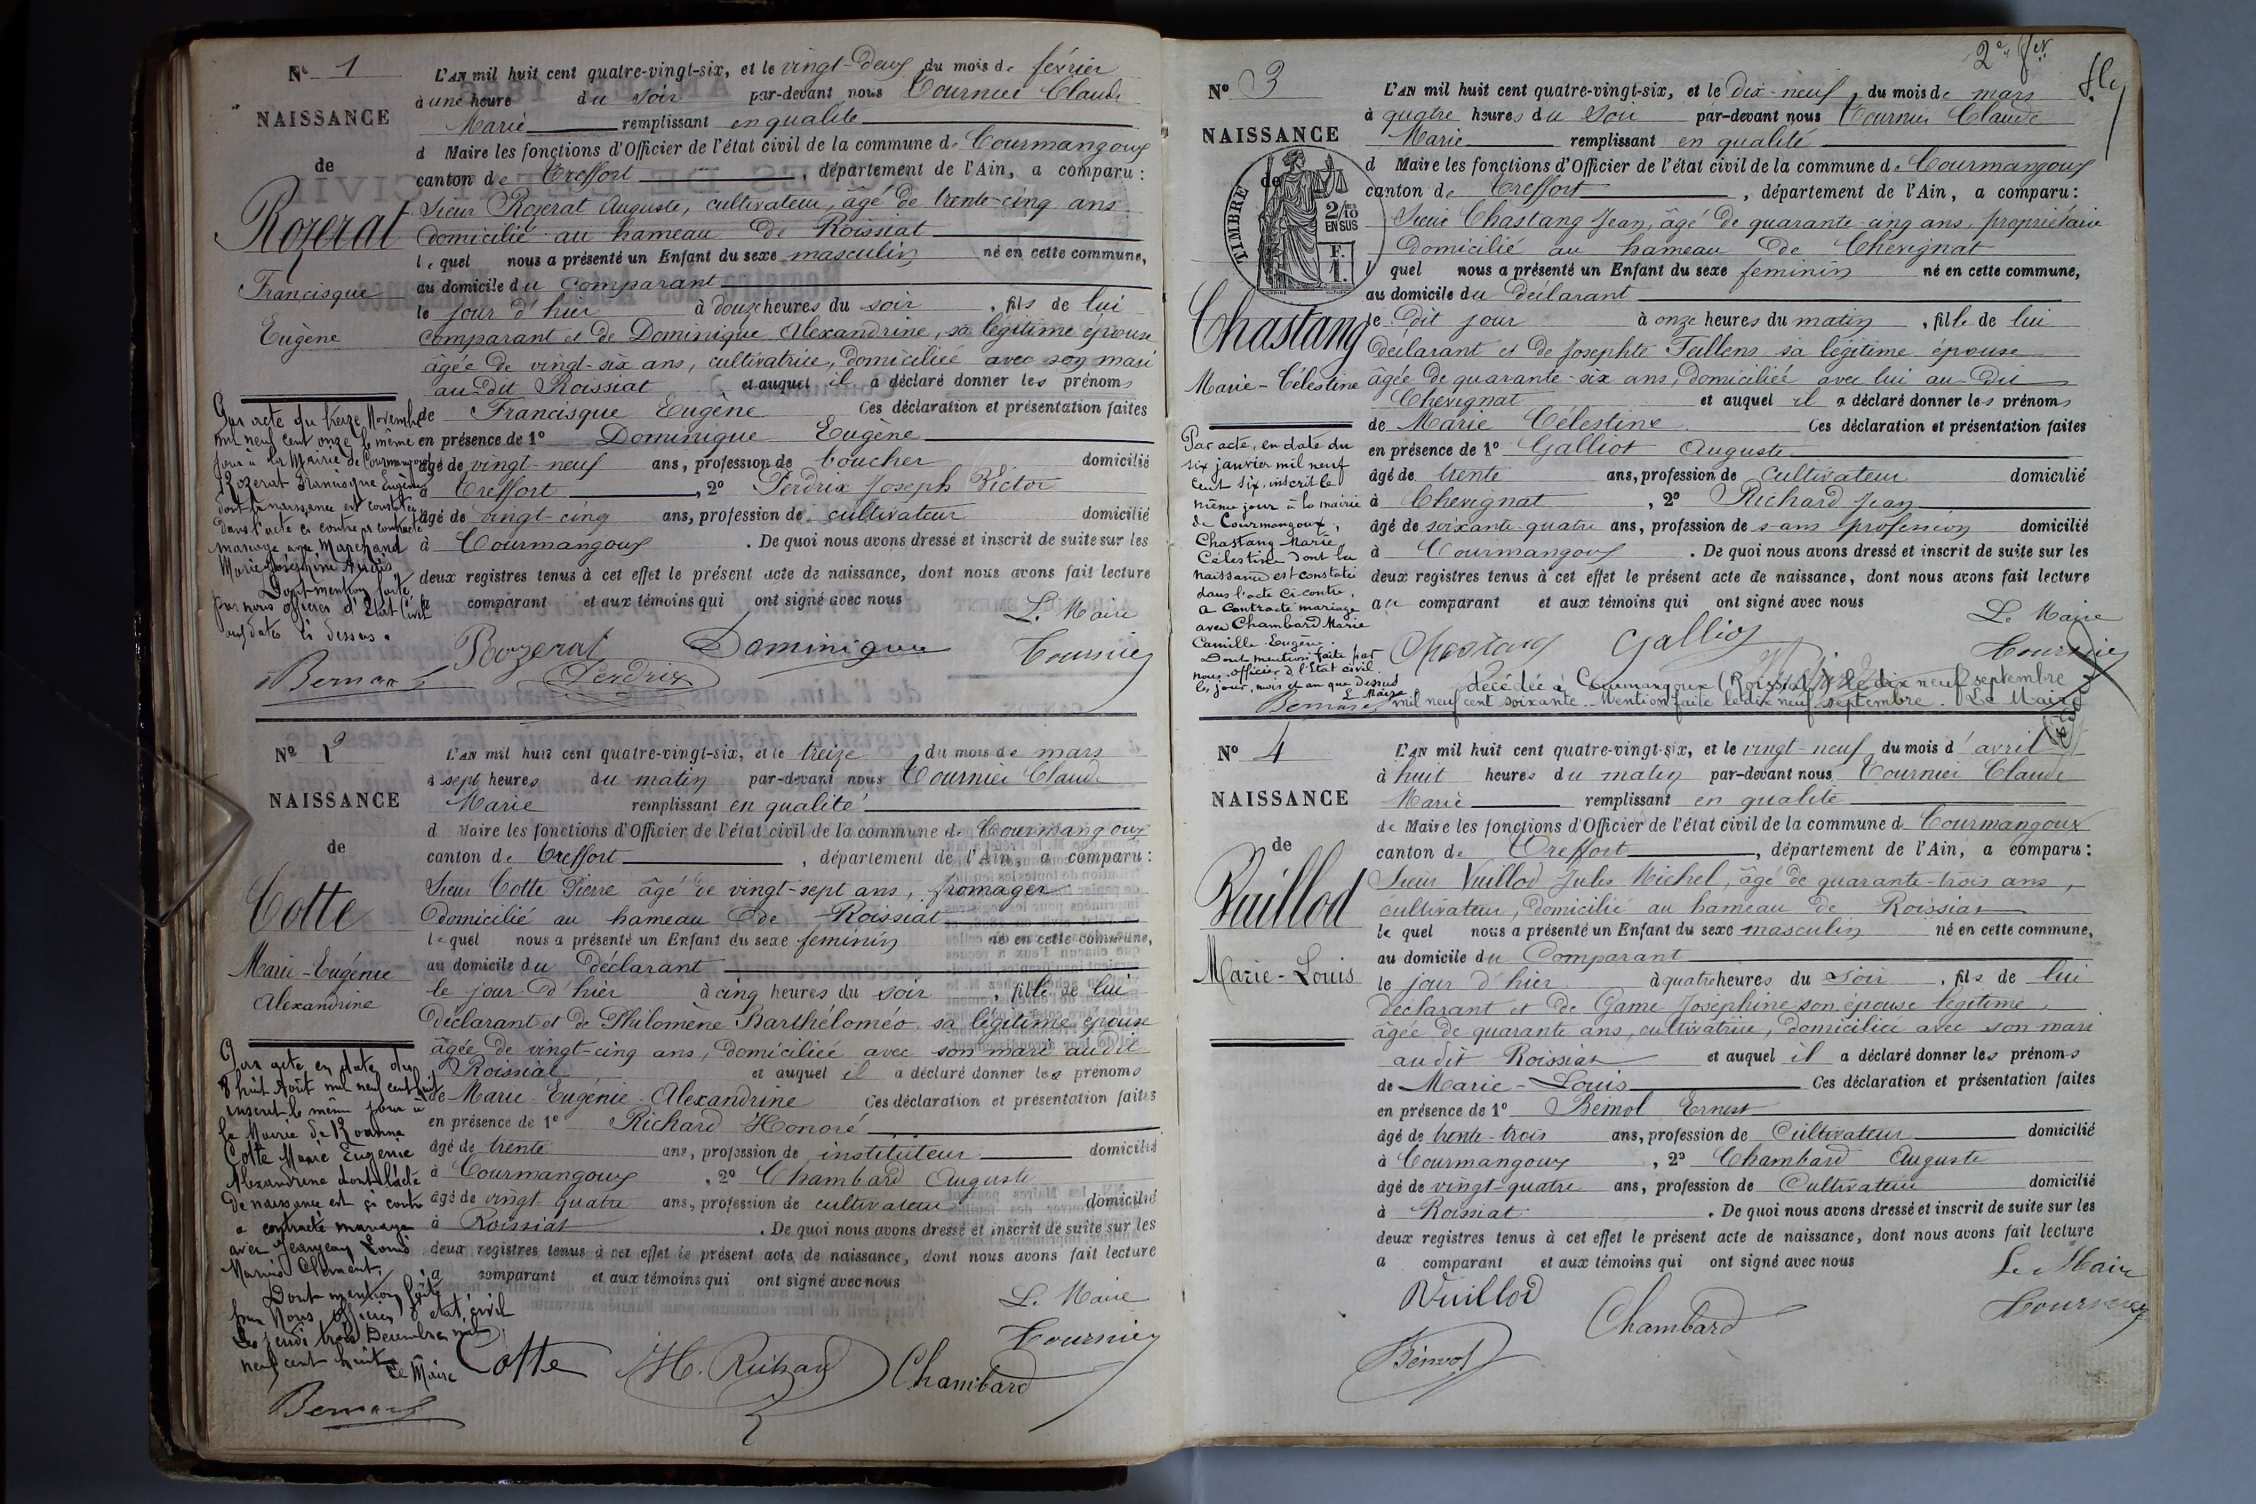 N° 1
NAISSANCE
de
Rozerat
Francisque
Eugène
L'AN mil huit cent quatre-vingt-six, et le vingt-deux du mois de février
à une heure du soir par-devant nous Tournier Claude
Marie remplissant en qualité
d Maire les fonctions d'Officier de l'état civil de la commune de Courmangoux
canton de Treffort, département de l'Ain, a comparu:
Sieur Rozerat Auguste, cultivateur, âgé de trente-cinq ans
domicilié au hameau de Roissiat
lequel nous a présenté un Enfant du sexe masculin né en cette commune,
au domicile du comparant
le jour d'hier à douze heures du soir, fils de lui
comparant et de Dominique Alexandrine, sa légitime épouse
âgée de vingt-six ans, cultivatrice, domiciliée avec son mari
au dit Roissiat et auquel il a déclaré donner les prénoms
de Francisque Eugène Ces déclaration et présentation faites
en présence de 1° Dominique Eugène
âgé de vingt-neuf ans, profession de boucher domicilié
à Treffort, 2° Perdrix Joseph Victor
âgé de vingt-cinq ans, profession de cultivateur domicilié
à Courmangoux. De quoi nous avons dressé et inscrit de suite sur les
deux registres tenus à cet effet le présent acte de naissance, dont nous avons fait lecture
comparant et aux témoins qui ont signé avec nous
Le Maire
Rozerat Dominique Tournier
Perdrix
Par acte du treize Novembre
mil neuf cent onze le même
jour à la Mairie de Courmangoux
Rozerat Francisque Eugène
dont la naissance est constatée
dans l'acte ci contre a contracté
mariage avec Marchand
Marie Joséphine
Dont mention faite
par nous officier d'Etat Civil
aux dates ci dessus.
Bernard
N° 2
NAISSANCE
de
Cotte
Marie-Eugénie
Alexandrine
L'AN mil huit cent quatre-vingt-six, et le treize du mois de mars
à sept heures du matin par-devant nous Tournier Claude
Marie remplissant en qualité
d Maire les fonctions d'Officier de l'état civil de la commune de Courmangoux
canton de Treffort, département de l'Ain, a comparu:
Sieur Cotte Pierre âgé de vingt-sept ans, fromager
domicilié au hameau de Roissiat
lequel nous a présenté un Enfant du sexe féminin né en cette commune,
au domicile du déclarant
le jour d'hier à cinq heures du soir, fille de lui
déclarant et de Philomène Barthéloméo sa légitime épouse
âgée de vingt-cinq ans, domiciliée avec son mari audit
Roissiat et auquel il a déclaré donner les prénoms
de Marie-Eugénie-Alexandrine Ces déclaration et présentation faites
en présence de 1° Richard Honoré
âgé de trente ans, profession de instituteur domicilié
à Courmangoux, 2° Chambard Auguste
âgé de vingt quatre ans, profession de cultivateur domicilié
à Roissiat. De quoi nous avons dressé et inscrit de suite sur les
deux registres tenus à cet effet le présent acte de naissance, dont nous avons fait lecture
a comparant et aux témoins qui ont signé avec nous
Le Maire
Tournier
Cotte H. Richard Chambard
Par acte en date du
huit Août mil neuf cent huit
inscrit le même jour à
la Mairie de Roanne
Cotte Marie Eugénie
Alexandrine dont l'acte
de naissance est ci contre
a contracté mariage
avec Jeanjean Louis
Marius Clément,
Dont mention faite
par Nous officier d'état civil
le jeudi trois Décembre mil
neuf cent huit
Le Maire
Bernard
2e fer
N° 3
NAISSANCE
de
TIMBRE
2/10
EN SUS
Chastang
Marie-Célestine
L'AN mil huit cent quatre-vingt-six, et le dix-neuf du mois de mars
à quatre heures du soir par-devant nous Tournier Claude
Marie remplissant en qualité
d Maire les fonctions d'Officier de l'état civil de la commune de Courmangoux
canton de Treffort, département de l'Ain, a comparu:
Sieur Chastang Jean, âgé de quarante-cinq ans, propriétaire
domicilié au hameau de Chevignat
lequel nous a présenté un Enfant du sexe féminin né en cette commune,
au domicile du déclarant
le dit jour à onze heures du matin, fille de lui
déclarant et de Josephte Feillens sa légitime épouse
âgée de quarante-six ans, domiciliée avec lui au dit
Chevignat et auquel il a déclaré donner les prénoms
de Marie Célestine Ces déclaration et présentation faites
en présence de 1° Galliot Auguste
âgé de trente ans, profession de cultivateur domicilié
à Chevignat, 2° Richard Jean
âgé de soixante-quatre ans, profession de sans profession domicilié
à Courmangoux. De quoi nous avons dressé et inscrit de suite sur les
deux registres tenus à cet effet le présent acte de naissance, dont nous avons fait lecture
au comparant et aux témoins qui ont signé avec nous
Le Maire
Chastang Galliot Tournier
décédée à Courmangoux (Roissiat) le dix neuf septembre
mil neuf cent soixante. Mention faite le dix neuf septembre. Le Maire
Par acte, en date du
six janvier mil neuf
cent six, inscrit le
même jour à la mairie
de Courmangoux,
Chastang Marie
Célestine dont la
naissance est constatée
dans l'acte ci-contre,
a contracté mariage
avec Chambard Marie
Camille Eugène.
Dont mention faite par
nous officier d'Etat civil
les jour, mois et an que dessus
Le Maire
Bernard
N° 4
NAISSANCE
de
Vuillod
Marie-Louis
L'AN mil huit cent quatre-vingt-six, et le vingt-neuf du mois d'avril
à huit heures du matin par-devant nous Tournier Claude
Marie remplissant en qualité
de Maire les fonctions d'Officier de l'état civil de la commune d Courmangoux
canton de Treffort, département de l'Ain, a comparu:
Sieur Vuillod Jules Michel, âgé de quarante-trois ans,
cultivateur, domicilié au hameau de Roissiat
lequel nous a présenté un Enfant du sexe masculin né en cette commune,
au domicile du Comparant
le jour d'hier à quatre heures du soir, fils de lui
déclarant et de Game Joséphine son épouse légitime,
âgée de quarante ans, cultivatrice, domiciliée avec son mari
audit Roissiat et auquel il a déclaré donner les prénoms
de Marie-Louis Ces déclaration et présentation faites
en présence de 1° Bémol Ernest
âgé de trente-trois ans, profession de Cultivateur domicilié
à Courmangoux, 2° Chambard Auguste
âgé de vingt-quatre ans, profession de Cultivateur domicilié
à Roissiat. De quoi nous avons dressé et inscrit de suite sur les
deux registres tenus à cet effet le présent acte de naissance, dont nous avons fait lecture
a comparant et aux témoins qui ont signé avec nous
Le Maire
Vuillod Chambard Tournier